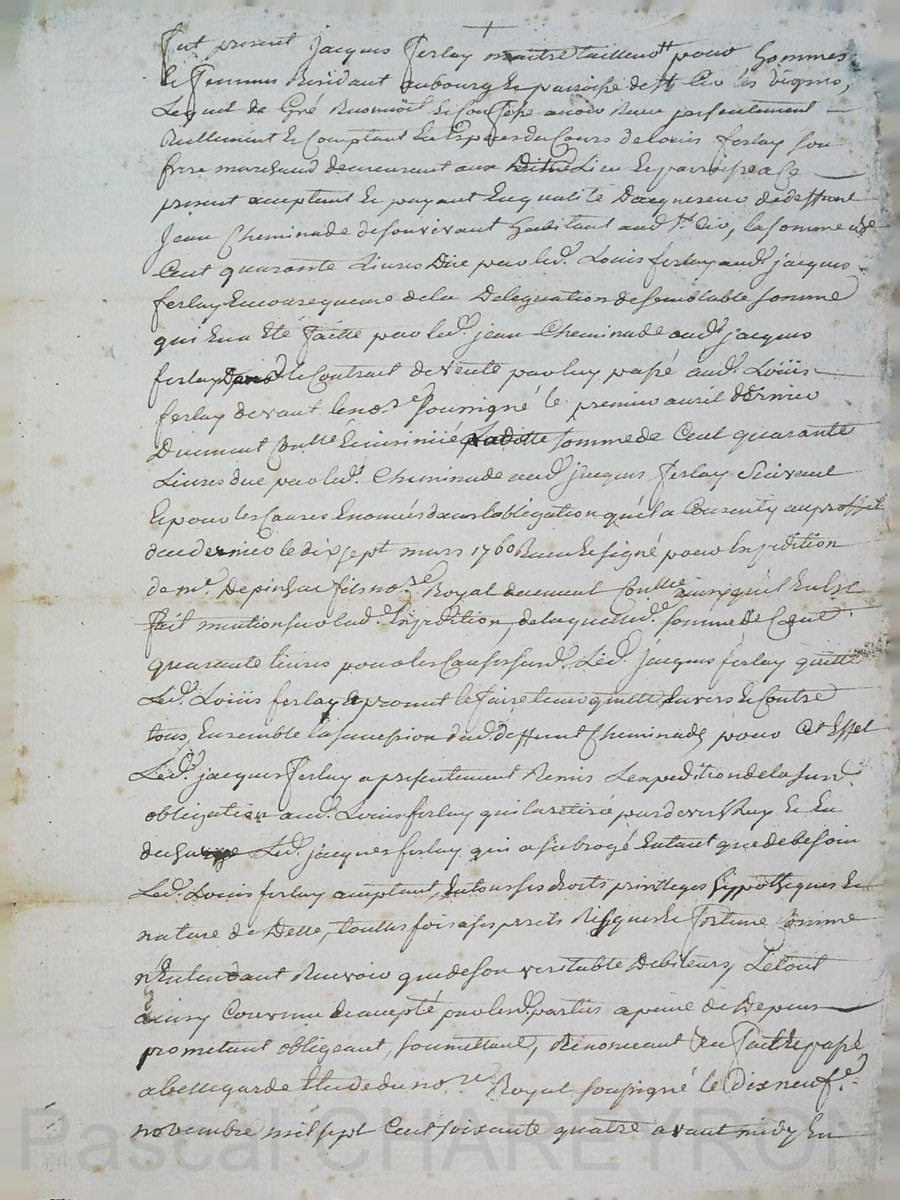 +
Fut present jacques Ferlay maitre tailleur pour hommes
et Femmes Residant au bourg et parroisse de St
Lequel de Gré Reconnoit et Confesse avoir Receu presentement
Reellement et Comptant En Espèces du Cours de Louis ferlay son
frere marchand demeurant aux Lieu et parroisse a Ce
present acceptant Et payant En qualité D'acquereur de deffunt
Jean Cheminade de son vivant habitant aud. St. , la somme de
Cent quarante Livres Düe par led. Louis ferlay aud. jacques
ferlay En consequence de la Delegation de semblable somme
qui En a Eté faitte par led. jean Cheminade aud. jacques
ferlay le Contract de vente par luy passé aud. Loüis
ferlay devant le nore. soussigné le premier avril dernier
Duement Contlé Et insinüé, somme de Cent quarante
Livres due par led. Cheminade aud. jacques Ferlay Suivant
Et pour les Causes Enoncés dans l'obligation qu'il a Consenty au proffit
du dernier le dix sept mars 1760 Receu Et signé pour Expedition
de me. Depinhac fils nore. Royal duement Contlle ainsy qu'il En Est
fait mention sur lad. Expedition, de laquelle d. somme de Cent
quarante livres pour les Causes susd. Led. jacques ferlay quitte
Led. Loüis ferlay Et promet le faire tenir quitte Envers Et Contre
tous, Ensemble la succession dud. deffunt Cheminade, pour Cet Effet
Led. jacques Ferlay a presentement Remis L'expedition de la susd.
obligation aud. Louis ferlay qui l'a retiré pardevers Luy Et En
decharge Led. jacques ferlay, qui a subrogé En tant que de besoin
Led. Louis ferlay acceptant, En tous ses droits privileges hypotheques Et
nature de Dette, toutes fois a ses perils Risques Et fortune Comme
n'Entendant Recevoir que de son veritable Debiteur, Le tout
ainsy Convenu Et accepté par lesd. parties a peine de Depens
promettant obligeant, soumettant, Renonceant &a Fait Et passé
a bellegarde Etude du nore Royal soussigné le Dixneufe.
novembre mil sept Cent soixante quatre avant midy En
Pascal CHAREYRON